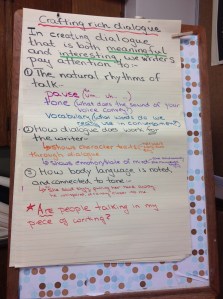 Crafting rich dialogue
In creating dialogue
that is both meaningful
and interesting we writers
pay attention to:-
① The natural rhythms of
talk-
pause (um, uh, ...)
tone (what does the sound of your
voice convey?)
vocabulary (What words do we
really use in
② How dialogue does work for
the writer-
↳ shows character traits
through dialogue
↳ shows emotion/state of mind
③ How body language is noted,
and connected to tone -
★ Are people talking in my
piece of writing?